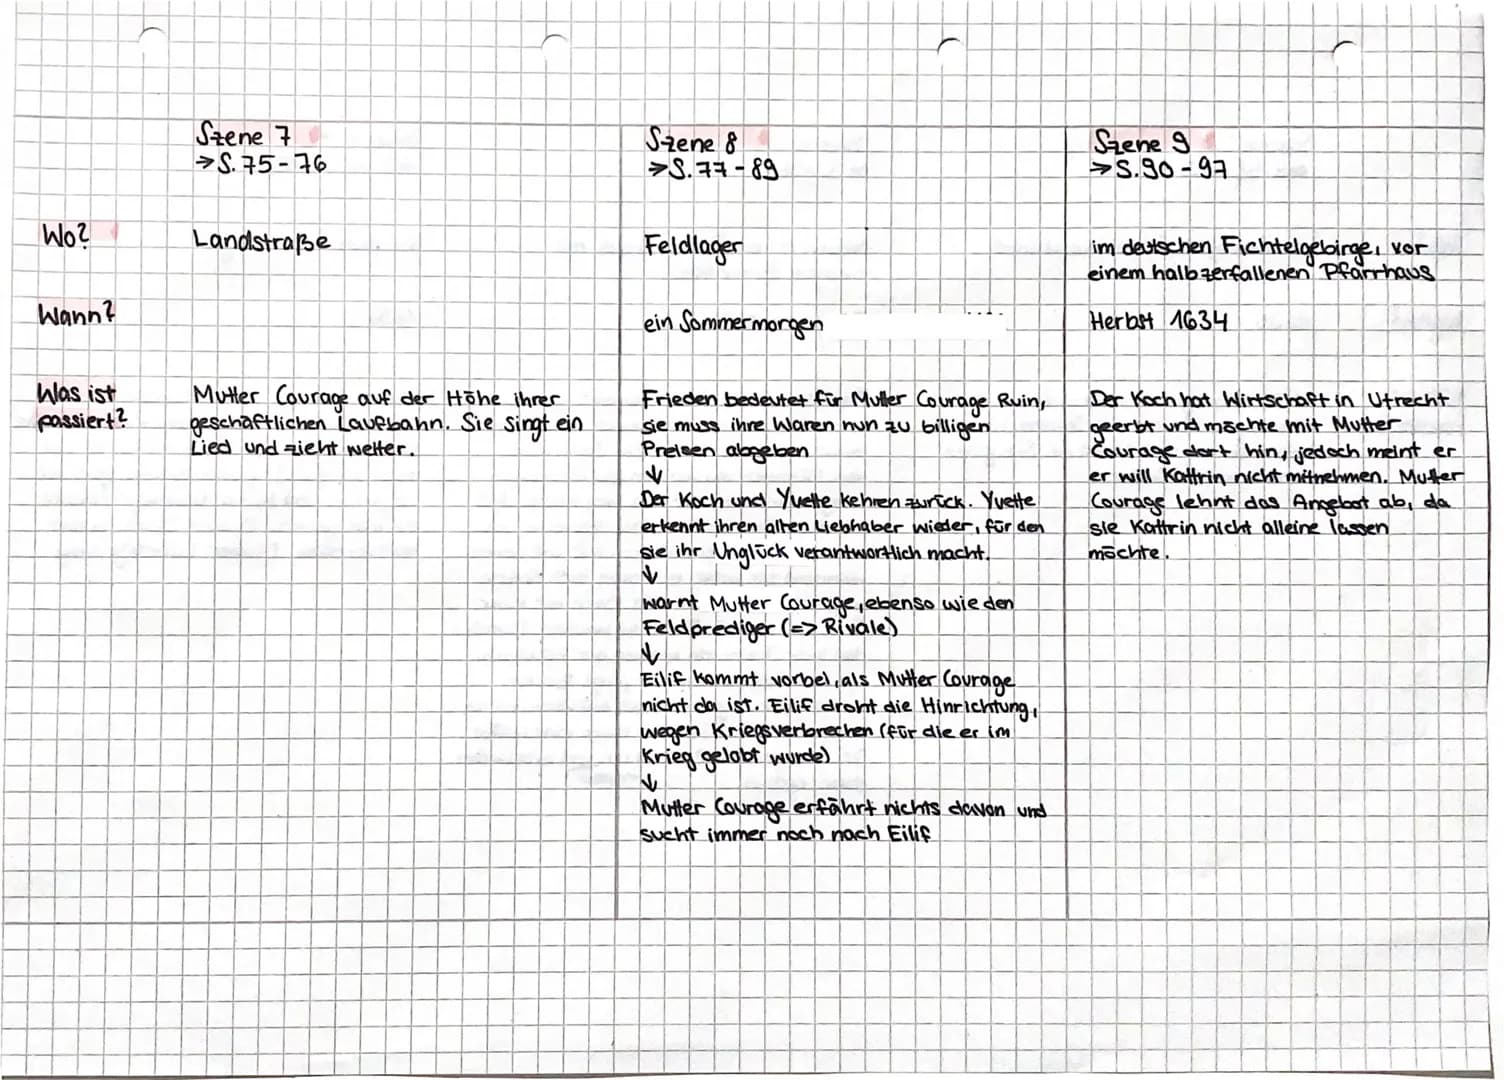 Szene 7
→ S. 75-76
Szene 8
→ S. 77-89
Szene 9
→ S. 90-97
Wo?
Landstraße
Feldlager
im deutschen Fichtelgebirge, vor
einem halbzerfallenen Pfarrhaus
Wann?
ein Sommermorgen
Herbst 1634
Was ist
passiert?
Mutter Courage auf der Höhe ihrer
geschäftlichen Laufbahn. Sie singt ein
Lied und zieht weiter.
Frieden bedeutet für Mutter Courage Ruin,
sie muss ihre Waren nun zu billigen
Preisen abgeben
↓
Der Koch und Yvette kehren zurück. Yvette
erkennt ihren alten Liebhaber wieder, für den
sie ihr Unglück verantwortlich macht.
↓
warnt Mutter Courage, ebenso wie den
Feldprediger (=> Rivale)
↓
Eilif kommt vorbei, als Mutter Courage
nicht da ist. Eilif droht die Hinrichtung,
wegen Kriegsverbrechen (für die er im
Krieg gelobt wurde)
↓
Mutter Courage erfährt nichts davon und
sucht immer noch nach Eilif
Der Koch hat Wirtschaft in Utrecht
geerbt und möchte mit Mutter
Courage dort hin, jedoch meint er
er will Kattrin nicht mitnehmen. Mutter
Courage lehnt das Angebot ab, da
sie Kattrin nicht alleine lassen
möchte.